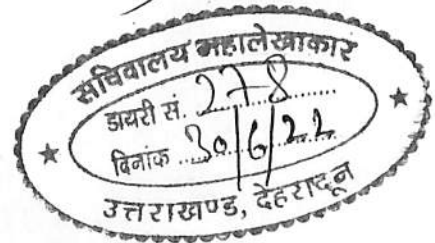 सचिवालय महालेखाकार
डायरी सं. 278
दिनांक 30/6/22
उत्तराखण्ड, देहरादून